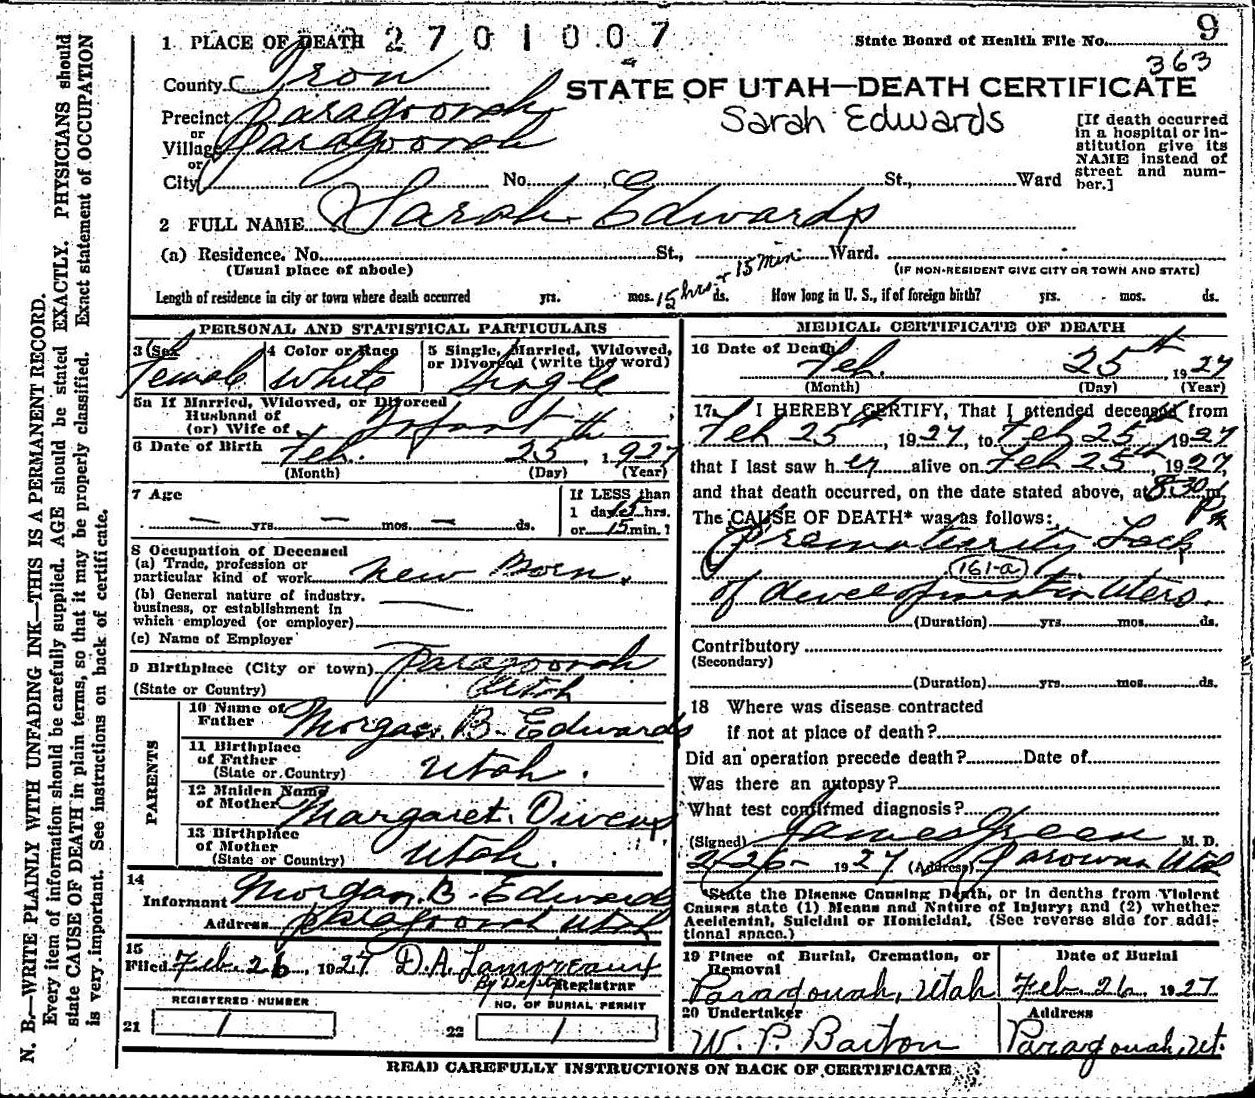 N. B.—WRITE PLAINLY WITH UNFADING INK—THIS IS A PERMANENT RECORD.
Every item of information should be carefully supplied. AGE should be stated EXACTLY. PHYSICIANS should
state CAUSE OF DEATH in plain terms, so that it may be properly classified. Exact statement of OCCUPATION
is very important. See instructions on back of certificate.
1 PLACE OF DEATH 2 7 0 1 0 0 7
State Board of Health File No. 9
363
County Iron
STATE OF UTAH—DEATH CERTIFICATE
Precinct Paragoonah
Sarah Edwards
or
Village Paragoonah
or
City No. St., Ward
[If death occurred
in a hospital or in-
stitution give its
NAME instead of
street and num-
ber.]
2 FULL NAME Sarah Edwards
(a) Residence. No. St., Ward.
(Usual place of abode)
(IF NON-RESIDENT GIVE CITY OR TOWN AND STATE)
Length of residence in city or town where death occurred yrs. mos. 15 hrs + 15 min ds. How long in U. S., if of foreign birth? yrs. mos. ds.
PERSONAL AND STATISTICAL PARTICULARS
3 Sex 4 Color or Race 5 Single, Married, Widowed,
or Divorced (write the word)
Female White Single
5a If Married, Widowed, or Divorced
Husband of
(or) Wife of Infant
6 Date of Birth Feb. 25th 1927
(Month) (Day) (Year)
7 Age
If LESS than
1 day 15 hrs.
— yrs. — mos. — ds. or 15 min.?
8 Occupation of Deceased
(a) Trade, profession or
particular kind of work New Born.
(b) General nature of industry,
business, or establishment in
which employed (or employer)
(c) Name of Employer
9 Birthplace (City or town) Paragoonah
(State or Country) Utah
PARENTS
10 Name of
Father Morgan B. Edwards
11 Birthplace
of Father
(State or Country) Utah.
12 Maiden Name
of Mother Margaret Owens
13 Birthplace
of Mother
(State or Country) Utah.
14
Informant Morgan B. Edwards
Address Paragoonah Utah
15
Filed Feb. 26, 1927 D. A. Lamoreaux
By Depty Registrar
REGISTERED NUMBER NO. OF BURIAL PERMIT
21 1 22 1
MEDICAL CERTIFICATE OF DEATH
16 Date of Death
Feb. 25th 1927
(Month) (Day) (Year)
17 I HEREBY CERTIFY, That I attended deceased from
Feb 25th, 1927, to Feb 25th, 1927
that I last saw her alive on Feb 25th, 1927,
and that death occurred, on the date stated above, at 8:30 m.
P m
The CAUSE OF DEATH* was as follows:
Prematurity Lack
161-a
of development in Utero.
(Duration) yrs. mos. ds.
Contributory
(Secondary)
(Duration) yrs. mos. ds.
18 Where was disease contracted
if not at place of death?
Did an operation precede death? Date of
Was there an autopsy?
What test confirmed diagnosis?
(Signed) James Green M. D.
2/26- 1927 (Address) Parowan Utah
*State the Disease Causing Death, or in deaths from Violent
Causes state (1) Means and Nature of Injury; and (2) whether
Accidental, Suicidal or Homicidal. (See reverse side for addi-
tional space.)
19 Place of Burial, Cremation, or
Removal
Date of Burial
Paragonah, Utah Feb. 26, 1927
20 Undertaker Address
W. P. Barton Paragonah, Ut.
READ CAREFULLY INSTRUCTIONS ON BACK OF CERTIFICATE